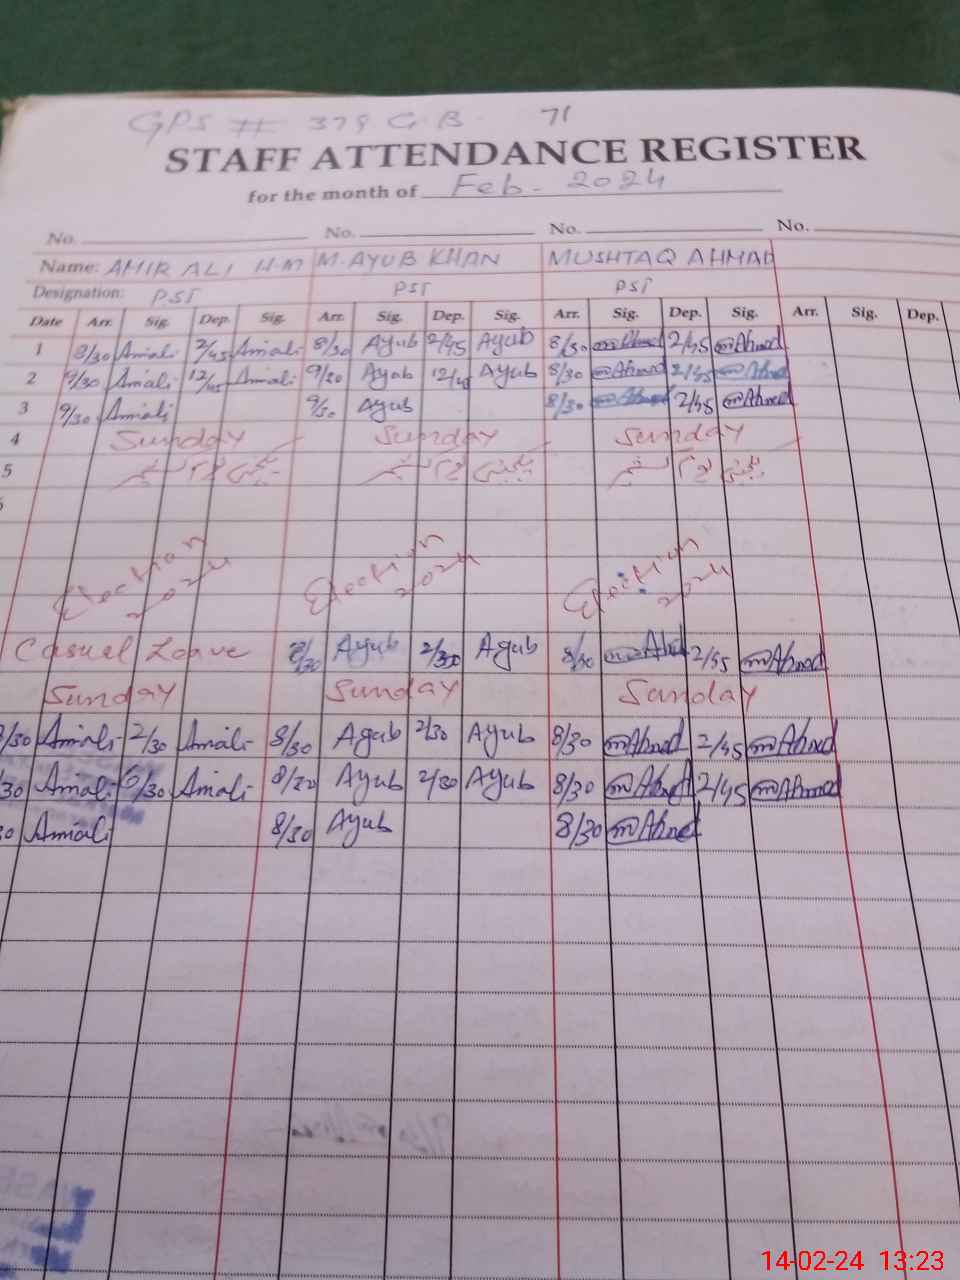 GPS # 379 G.B. 71
STAFF ATTENDANCE REGISTER
for the month of Feb - 2024
No. No. No. No.
Name: AMIR ALI H.M M. AYUB KHAN MUSHTAQ AHMAD
Designation: PST PST PST
Date Arr. Sig. Dep. Sig. Arr. Sig. Dep. Sig. Arr. Sig. Dep. Sig. Arr. Sig. Dep.
1 8/30 Amiali 2/45 Amiali 8/30 Ayub 2/45 Ayub 8/30 Ahmed 2/45 Ahmed
2 9/30 Amiali 12/45 Amiali 9/30 Ayub 12/45 Ayub 8/30 Ahmed 2/45 Ahmed
3 9/30 Amiali 9/30 Ayub 8/30 2/45 Ahmed
4 Sunday Sunday Sunday
5
Election 2024 Election 2024 Election 2024
Casual Leave 8/30 Ayub 2/30 Ayub 8/30 2/45 Ahmed
Sunday Sunday Sunday
8/30 Amiali 2/30 Amiali 8/30 Ayub 2/30 Ayub 8/30 Ahmed 2/45 Ahmed
/30 Amiali /30 Amiali 8/30 Ayub 2/30 Ayub 8/30 Ahmed 2/45 Ahmed
30 Amiali 8/30 Ayub 8/30 Ahmed
14-02-24 13:23